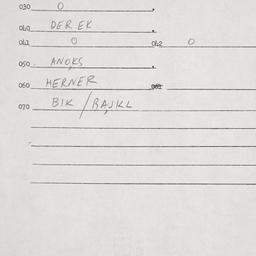 030 0
040 DEREK
041 0 042 0
050 ANOKS
060 HERNER 061
070 BIK / BAJKL